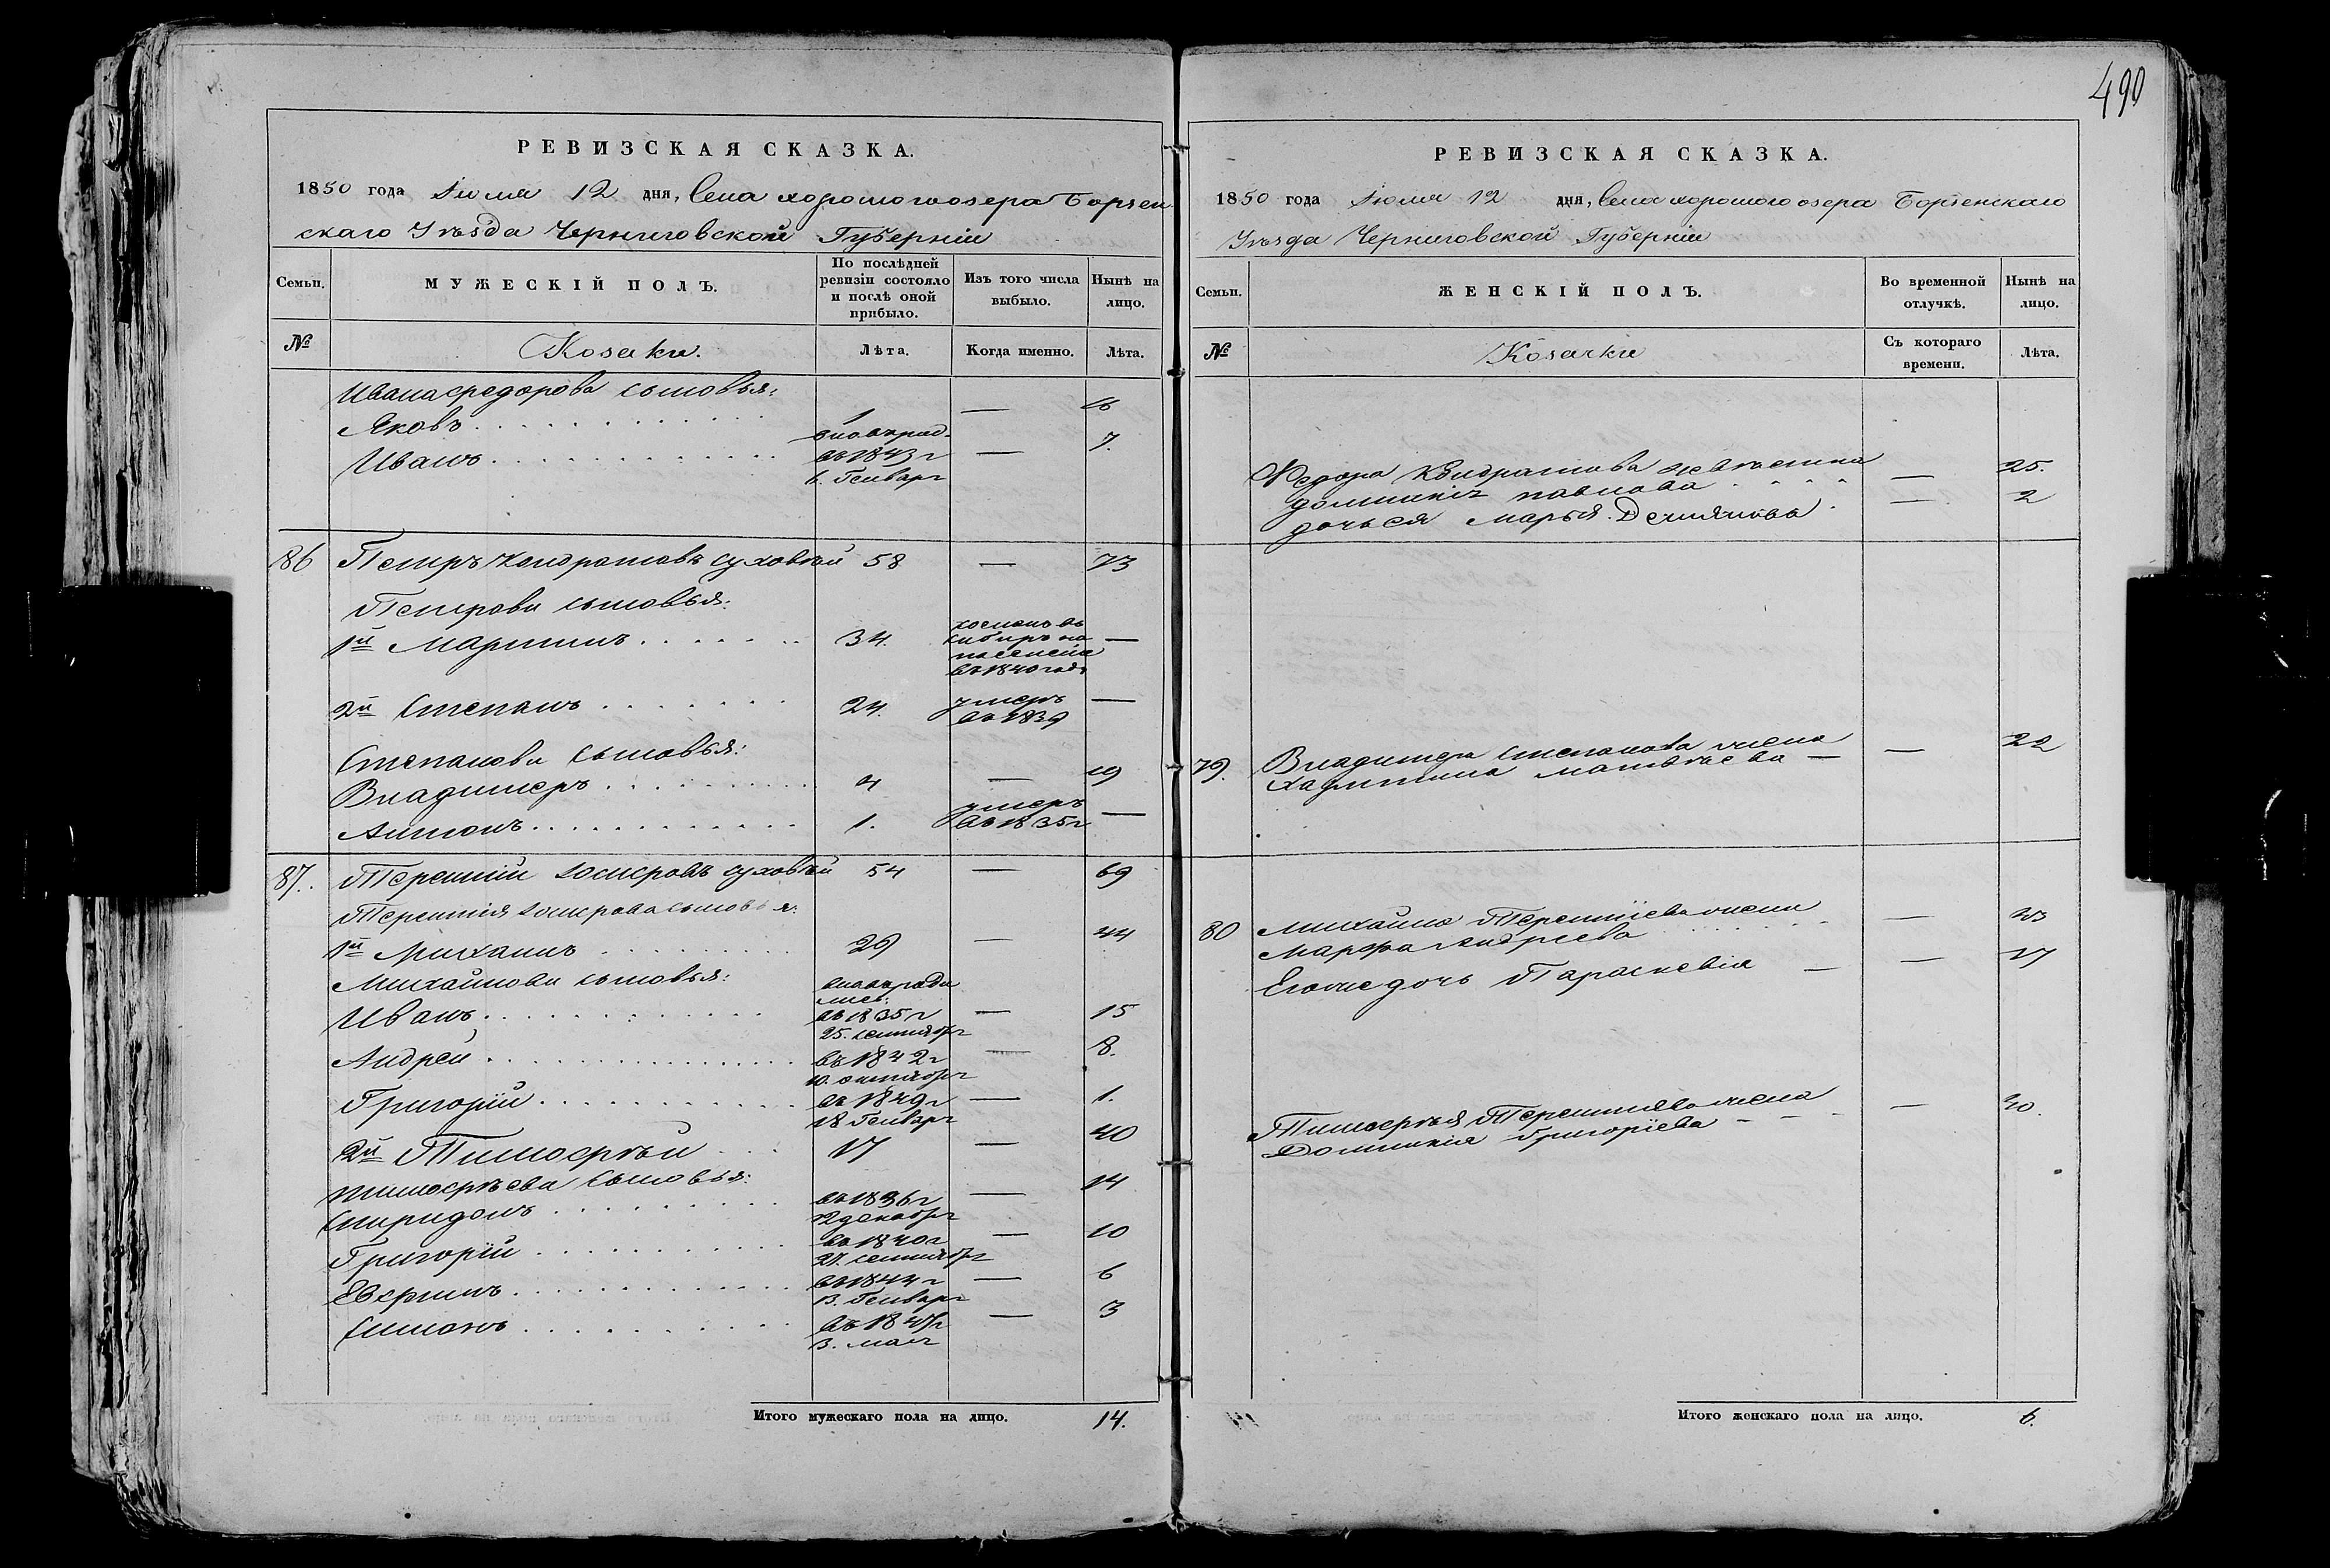 490
РЕВИЗСКАЯ СКАЗКА.
1850 года Іюля 12 дня, Села хорошогоозера Борзен
скаго Уѣзда Черниговской Губерніи
Семьи. МУЖЕСКІЙ ПОЛЪ. По послѣдней ревизіи состояло и послѣ оной прибыло. Изъ того числа выбыло. Нынѣ на лицо.
№ Козаки. Лѣта. Когда именно. Лѣта.
Ивана Федорова сыновья:
Яковъ 1 — 16
Иванъ вновьрад. въ 1843 г 6. Генваря — 7.
86 Петръ Кондратовъ Суховѣй 58 — 73
Петрови сыновья:
1й Мартинъ 34. сосланъ въ Сибирь на въ 1840 году —
2й Степанъ 24. умеръ въ 1839 —
Степанови сыновья:
Владимеръ 4 — 19
Антонъ 1. умеръ въ 1835 г —
87. Терентій Суховѣй 54 — 69
Терентія сыновья:
1й Михаилъ 29 — 44
Михайлови сыновья:
Иванъ вновьради лись: въ 1835 г 25. сентября — 15
Андрей въ 1842 г 10. октября — 8.
Григорій въ 1849 г 18 Генваря — 1.
2й Тимофѣй — 40
Тимофѣеви сыновья:
Спиридонъ въ 1836 г 12 декабря — 14
Григорій въ 1840 г 27. сентября — 10
въ 1844 г 13. Генваря — 6
Симонъ въ 1847 г 13. мая — 3
Итого мужескаго пола на лицо. 14.
РЕВИЗСКАЯ СКАЗКА.
1850 года Іюля 12 дня, Села хорошого озера Борзенскаго
Уѣзда Черниговской Губерніи
Семьи. ЖЕНСКІЙ ПОЛЪ. Во временной отлучкѣ. Нынѣ на лицо.
№ Козачки Съ котораго времени. Лѣта.
Федора Кондратова невѣстка
Домникія павлова — 25.
дочь ея Марья. — 2
79. Владимера Степанова жена
Харитина Матвѣева — 22
80 Михайла Терентіева жена
Марфа Андреева — 43
Егоже дочь Параскевія — 17
Тимофѣя Терентіева жена
Домникія Григоріева — 40.
Итого женскаго пола на лицо. 6.